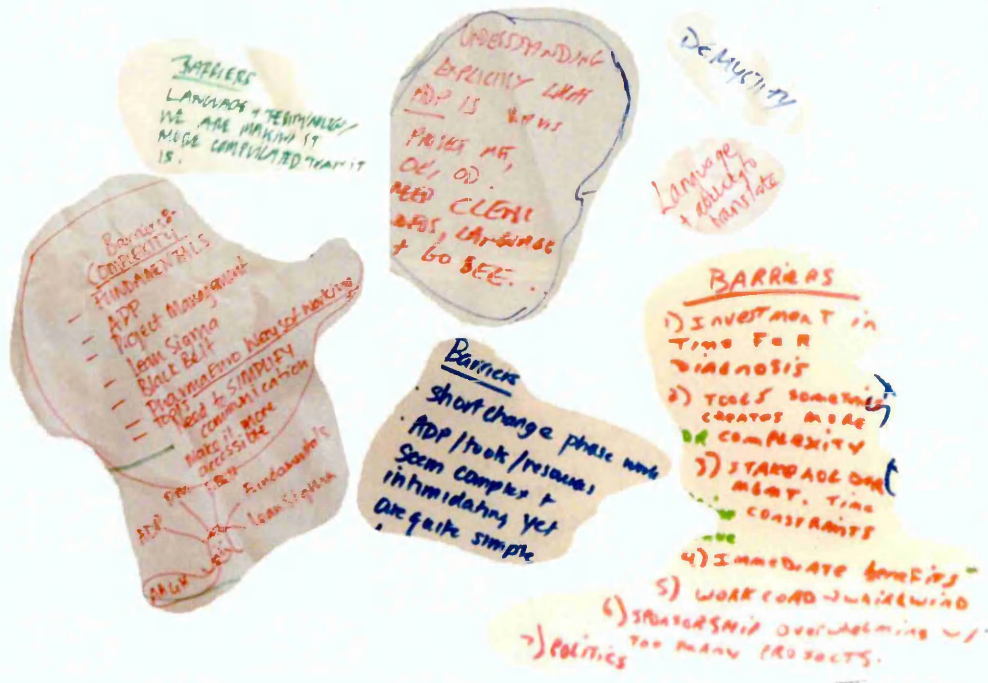 BARRIERS
LANGUAGE + TERMINOLOGY
WE ARE MAKING IT
MORE COMPLICATED THAN IT
IS.
UNDERSTANDING
EXPLICITLY WHAT
ADP IS
PROJECT MT,
OE, OD.
NEED CLEAR
LANGUAGE
+ GO SEE...
DEMYSTIFY
Language
+ ability to
translate
Barriers-
COMPLEXITY
FUNDAMENTALS
- ADP
- Project Management
- Lean Sigma
- Black Belt
- Ways of Working
- Tools
Need to SIMPLIFY
communication
make it more
accessible
Fundamentals
ADP
Lean Sigma
Barriers
short change phase work
. ADP/tools/resources
seem complex +
intimidating yet
are quite simple
BARRIERS
1) INVESTMENT in
Time FOR
DIAGNOSIS
2) TOOLS SOMETIMES
CREATES MORE
COMPLEXITY
3) STAKEHOLDER
MGMT. Time
CONSTRAINTS
4) IMMEDIATE benefits
5) WORKLOAD → WHIRLWIND
6) SPONSORSHIP overwhelming w/
TOO MANY PROJECTS.
7) POLITICS